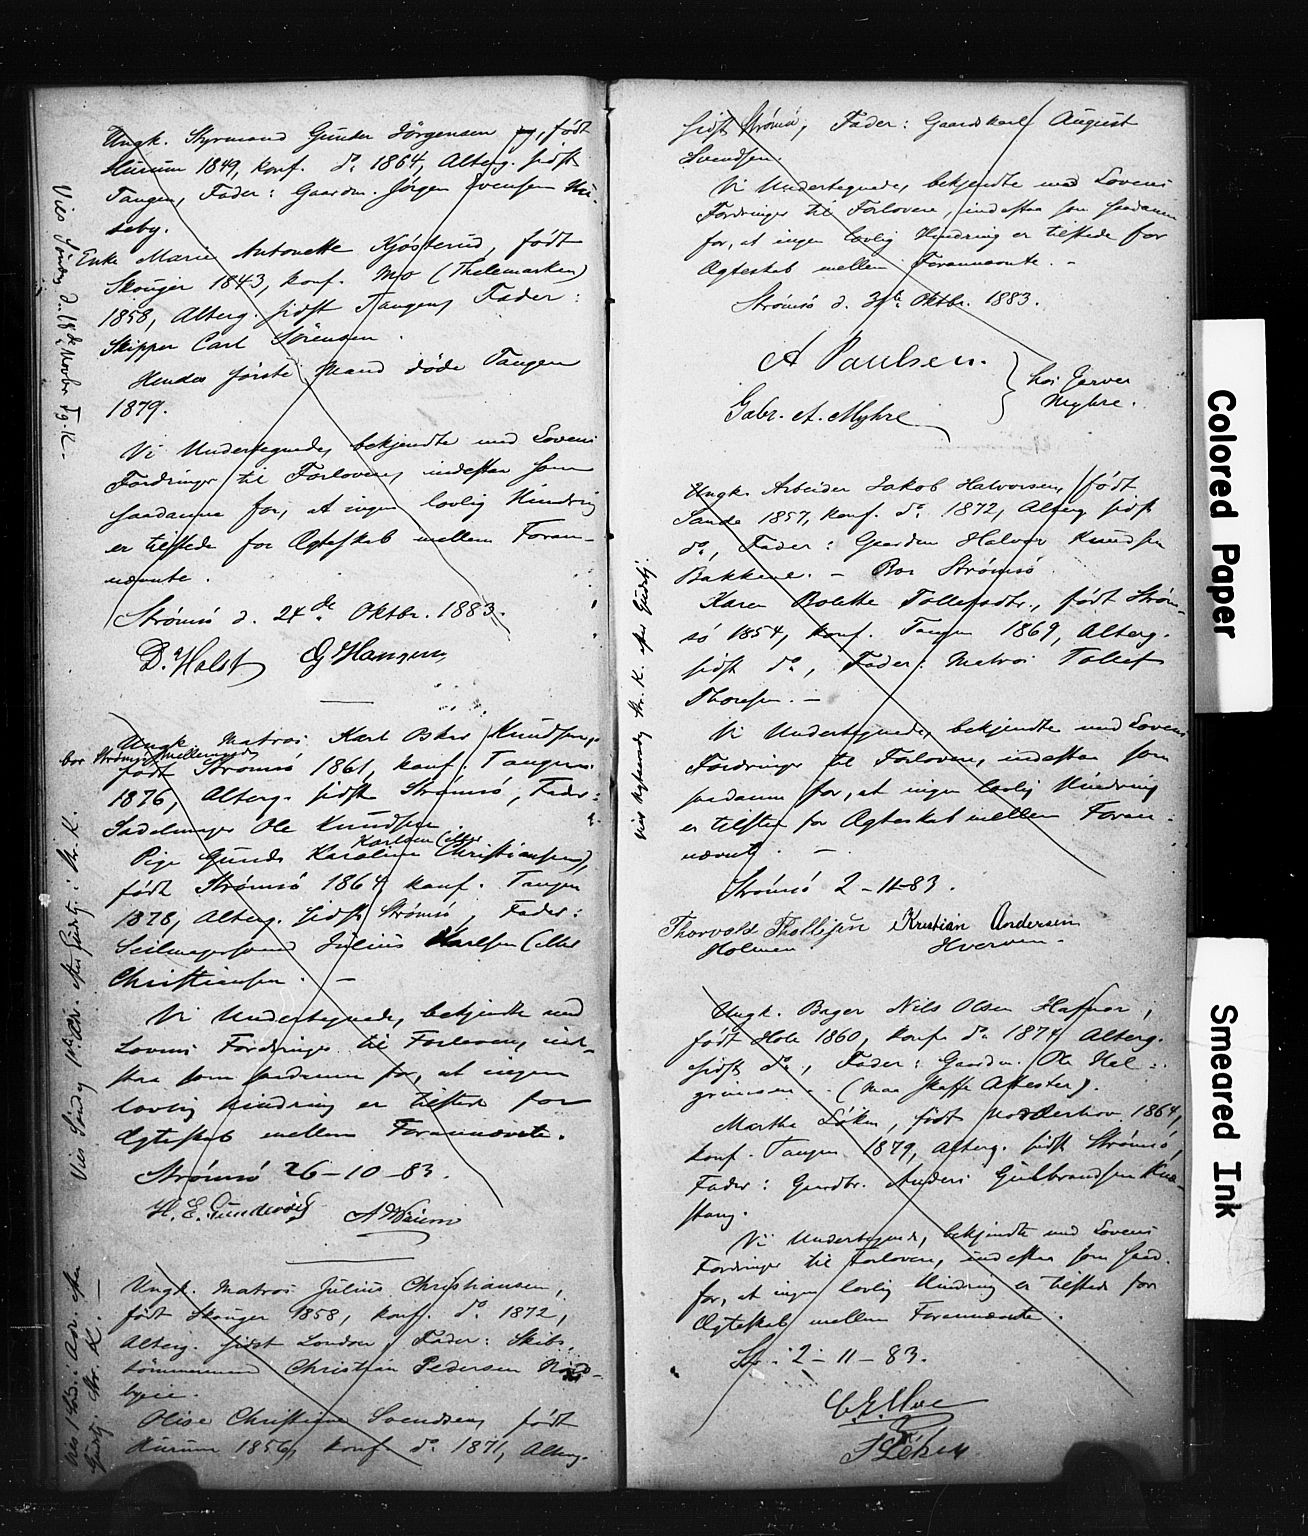 Ungk. Styrmand Gunder Jörgensen, född
Hurum 1849, konf. do 1864, Alterg. sidst
Tangen, Fader: Gaardm. Jörgen Evensen Hu-
seby.
Enke Marie Antonette Kjösterud, født
Skouger 1843, konf. Mo (Thelemarken)
1858, Alterg. sidst Tangen, Fader:
Skipper Carl Sörensen.
Hendes første Mand døde Tangen
1879.
Vi Undertegnede, bekjendte med Lovens
Fordringer til Forlovere, indestaa som
saadanne for, at ingen lovlig Hindring
er tilstede for Ægteskab mellem Foran-
nævnte.
Strömsö d. 24de Oktbr. 1883.
D. Holst G Hansen
Viet Söndag d. 18de Novbr. Tg. K.
Ungk. Matros Karl Oskar Knudsen,
bor Strömsö
født Strömsö 1861, konf. Tangen
1876, Alterg. sidst Strömsö, Fader:
Sadelmager Ole Knudsen
Karlsen (eller
Pige Gunda Karoline Christiansen),
født Strömsö 1864, konf. Tangen
1878, Alterg. sidst Strömsö, Fader:
Seilmagersvend Julius Karlsen (eller
Christiansen. —
Vi Undertegnede, bekjendte med
Lovens Fordringer til Forlovere, inde-
staa som saadanne for, at ingen
lovlig Hindring er tilstede for
Ægteskab mellem Forannævnte.
Strömsö 26-10-83.
H. E. Gundersen
Viet Söndag efter Gudstj. i Str. K.
Ungk. Matros Julius Christiansen,
født Skouger 1858, konf. do 1872,
Alterg. sidst London, Fader: Skibs-
tömmermand Christian Pedersen
Olise Christine Svendsen, født
Hurum 1856, konf. do 1871, Alterg.
efter
Gudstj. Str. K. —
sidst Strömsö, Fader: Gaardskarl August
Svendsen.
Vi Undertegnede, bekjendte med Lovens
Fordringer til Forlovere, indestaa som saadanne
for, at ingen lovlig Hindring er tilstede for
Ægteskab mellem Forannævnte. -
Strömsö d. Oktbr. 1883.
A Paulsen.
Gabr. A. Myhre
hos Garver
Myhre.
Ungk. Arbeider Jakob Halvorsen, født
Sande 1857, konf. do 1872, Alterg. sidst
do, Fader: Gaardm Halvor Knudsen
Bakkene. — Bor Strömsö
Karen Bolette Tollefsdtr., født Ström-
sö 1854, konf. Tangen 1869, Alterg.
sidst do, Fader: Matros Tollef
Thoresen. —
Vi Undertegnede, bekjendte med Lovens
Fordringer til Forlovere, indestaa som
saadanne for, at ingen lovlig Hindring
er tilstede for Ægteskab mellem Foran-
nævnte. —
Strömsö 2-11-83.
Thorvald Thollefsen Kristian Andersen
Holmen Hverven
Str. K. efter Gudstj.
Ungk. Bager Nils Olsen Hafnor,
født Hole 1860, konf. do 1874, Alterg.
sidst do, Fader: Gaardm. Ole Hel-
grimsen. (maa skaffe Attester).
Marthe Löken, født Norderhov 1864,
konf. Tangen 1879, Alterg. sidst Strömsö,
Fader: Gaardbr. Anders Gulbrandsen Knæ-
stang.
Vi Undertegnede, bekjendte med Lovens
Fordringer til Forlovere, indestaa som saad.
for, at ingen lovlig Hindring er tilstede for
Ægteskab mellem Forannævnte.
Str. 2-11-83.
Colored Paper
Smeared Ink